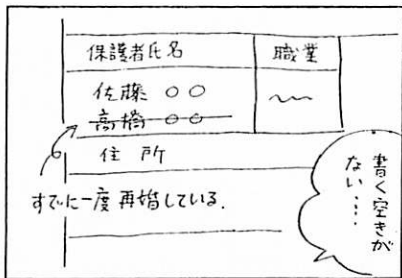 保護者氏名
職業
佐藤 ○○
高橋 ○○
住所
すでに一度再婚している.
書く空きが
ない……